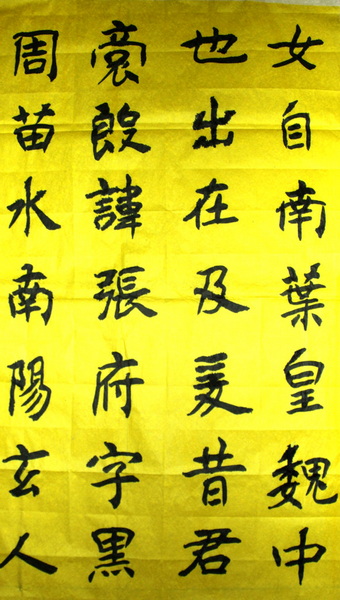 女自南葉皇魏中
也出在及爰昔君
裔殷諱張府字黑
周苗水南陽玄人